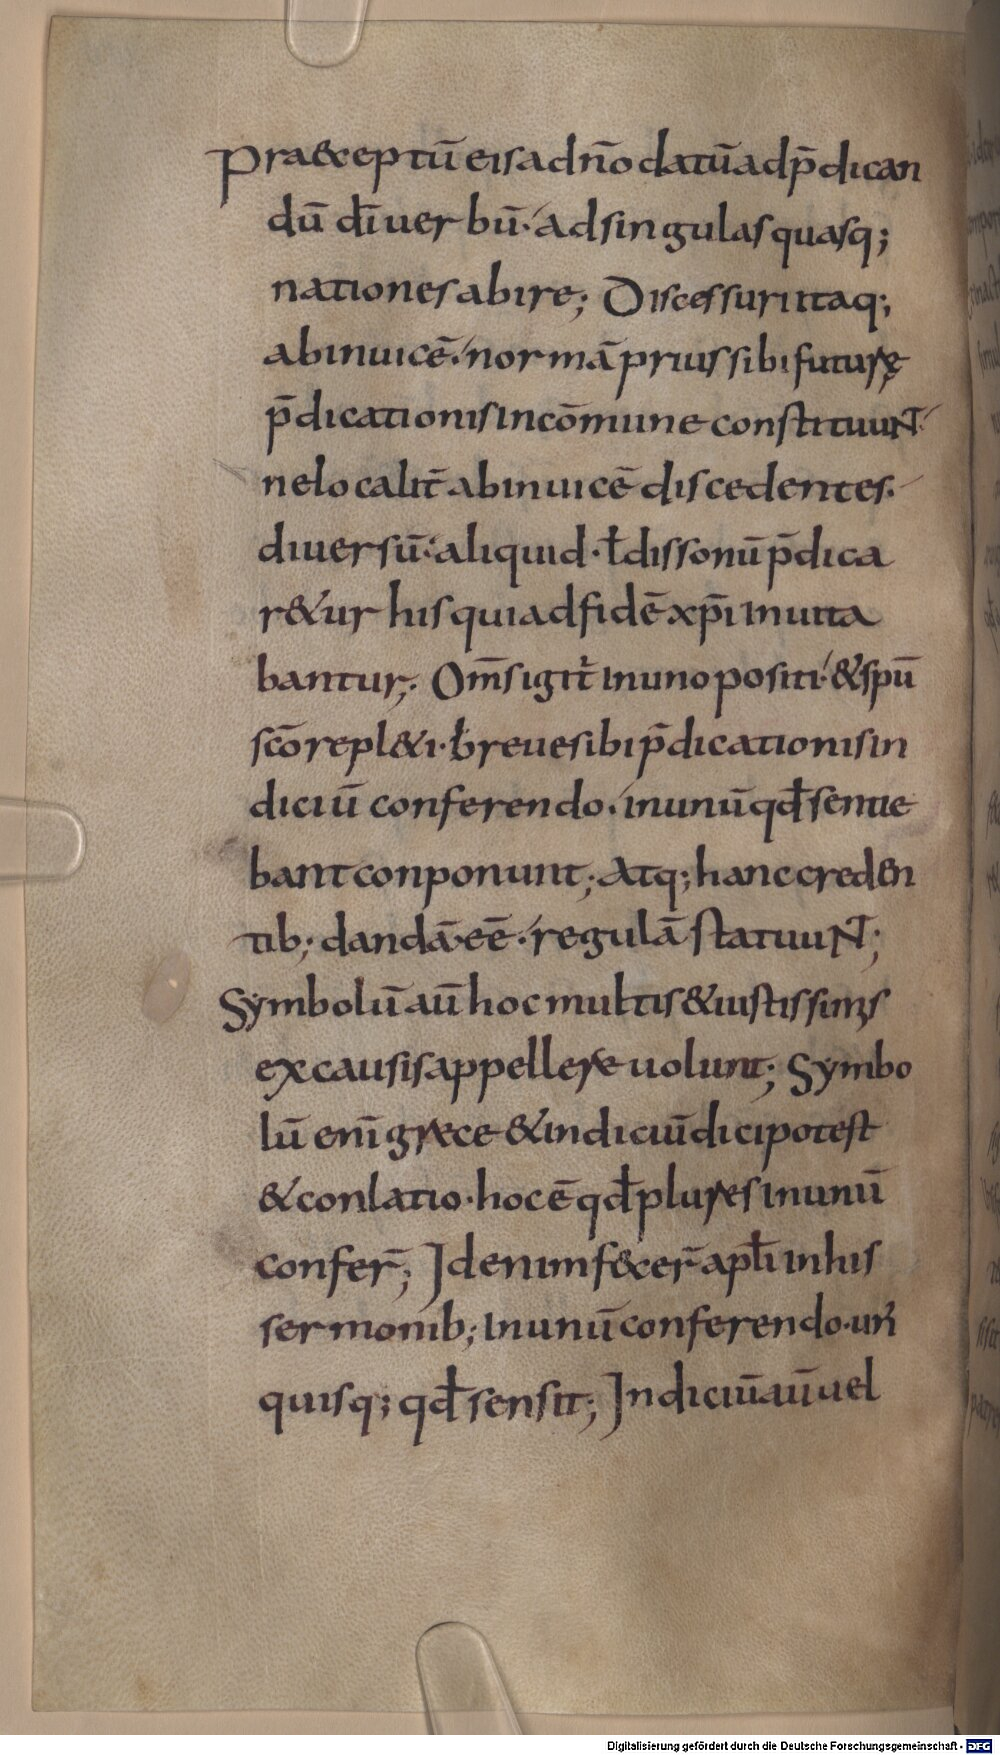 Praeceptū eis a dn̄o datū ad p̄dican
dū dī uerbū· ad singulas quasq;
nationes abire; Discessuri itaq;
abinuicē· normā prius sibi futurę
p̄dicationis in cōmune constituuNT·
ne localit̄ abinuicē discedentes·
diuersū· aliquid· ł dissonū p̄dica
r&ur his qui ad fidē xp̄i inuita
bantur; Om̄s igit̄ in uno positi· & sp̄u
sc̄o repl&i· breue sibi p̄dicationis in
diciū conferendo· in unū qđ sentie
bant conponunt; Atq; hanc creden
tib; dandā eē· regulā statuuNT;
Symbolū aū hoc multis & iustissimis
ex causis appellere uolunt; Symbo
lū enī grece & indiciū dici potest
& conlatio· hoc ē qđ plures in unū
confer̄; Id enim fecer̄ apłi in his
sermonib; in unū conferendo· un̄
quisq; qđ sensit; Indiciū aū uel
Digitalisierung gefördert durch die Deutsche Forschungsgemeinschaft - DFG